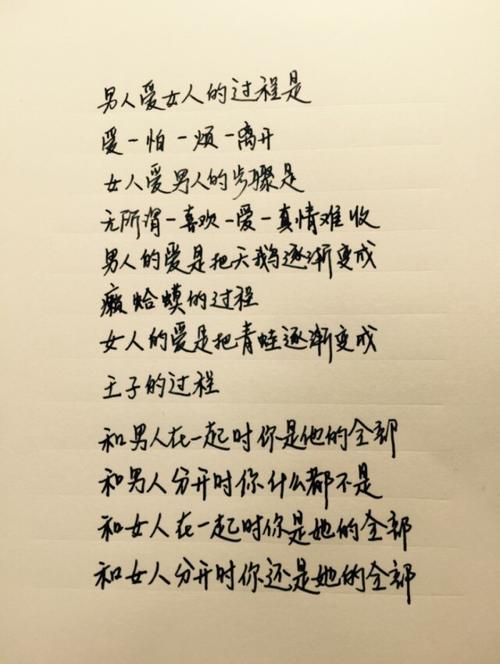 男人爱女人的过程是
爱一怕一烦一离开
女人爱男人的步骤是
无所谓一喜欢一爱一真情难收
男人的爱是把天鹅逐渐变成
癞蛤蟆的过程
女人的爱是把青蛙逐渐变成
王子的过程
和男人在一起时你是他的全部
和男人分开时你什么都不是
和女人在一起时你是她的全部
和女人分开时你还是她的全部